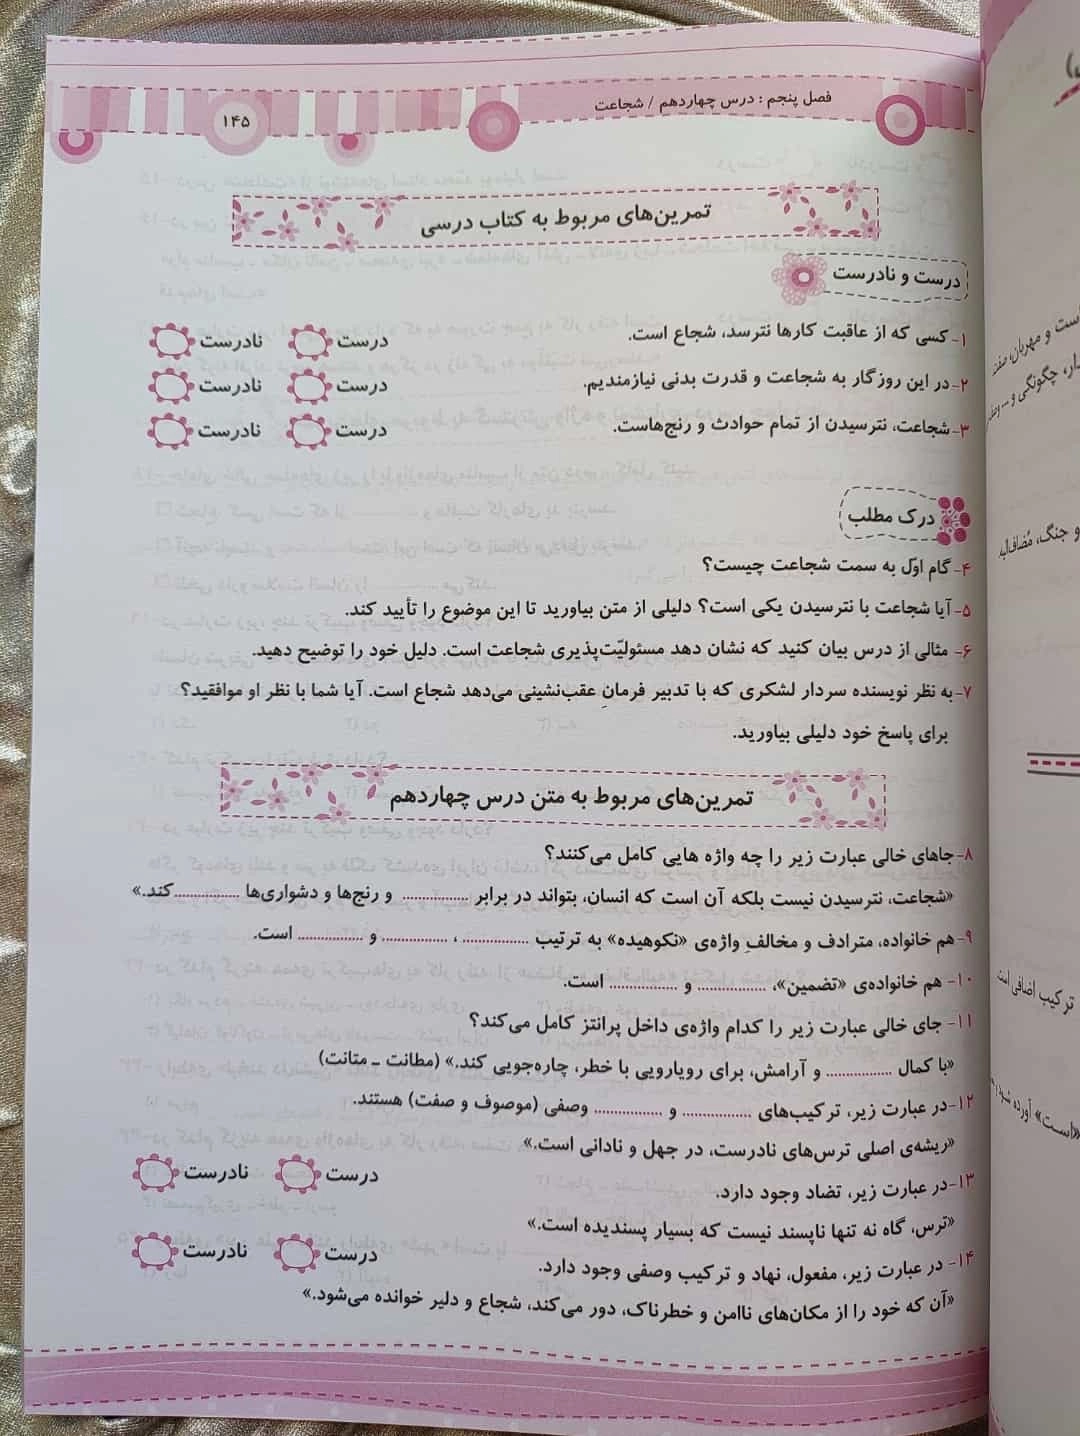 فصل پنجم : درس چهاردهم / شجاعت
۱۴۵
تمرین‌های مربوط به کتاب درسی
درست و نادرست
۱- کسی که از عاقبت کارها نترسد، شجاع است. درست نادرست
۲- در این روزگار به شجاعت و قدرت بدنی نیازمندیم. درست نادرست
۳- شجاعت، نترسیدن از تمام حوادث و رنج‌هاست. درست نادرست
درک مطلب
۴- گام اوّل به سمت شجاعت چیست؟
۵- آیا شجاعت با نترسیدن یکی است؟ دلیلی از متن بیاورید تا این موضوع را تأیید کند.
۶- مثالی از درس بیان کنید که نشان دهد مسئولیّت‌پذیری شجاعت است. دلیل خود را توضیح دهید.
۷- به نظر نویسنده سردار لشکری که با تدبیر فرمانِ عقب‌نشینی می‌دهد شجاع است. آیا شما با نظر او موافقید؟
برای پاسخ خود دلیلی بیاورید.
تمرین‌های مربوط به متن درس چهاردهم
۸- جاهای خالی عبارت زیر را چه واژه هایی کامل می‌کنند؟
«شجاعت، نترسیدن نیست بلکه آن است که انسان، بتواند در برابر ................ و رنج‌ها و دشواری‌ها ................کند.»
۹- هم خانواده، مترادف و مخالفِ واژه‌ی «نکوهیده» به ترتیب ................ ، ................ و ................ است.
۱۰- هم خانواده‌ی «تضمین»، ................ و ................ است.
۱۱- جای خالی عبارت زیر را کدام واژه‌ی داخل پرانتز کامل می‌کند؟
«با کمال ................ و آرامش، برای رویارویی با خطر، چاره‌جویی کند.» (مطانت ـ متانت)
۱۲- در عبارت زیر، ترکیب‌های ................ و ................ وصفی (موصوف و صفت) هستند.
«ریشه‌ی اصلی ترس‌های نادرست، در جهل و نادانی است.»
۱۳- در عبارت زیر، تضاد وجود دارد. درست نادرست
«ترس، گاه نه تنها ناپسند نیست که بسیار پسندیده است.»
۱۴- در عبارت زیر، مفعول، نهاد و ترکیب وصفی وجود دارد. درست نادرست
«آن که خود را از مکان‌های ناامن و خطرناک، دور می‌کند، شجاع و دلیر خوانده می‌شود.»
است و مهربان، صفت
چگونگی و ...
و جنگ، مُضاف‌الیه
ترکیب اضافی است
«است» آورده شود